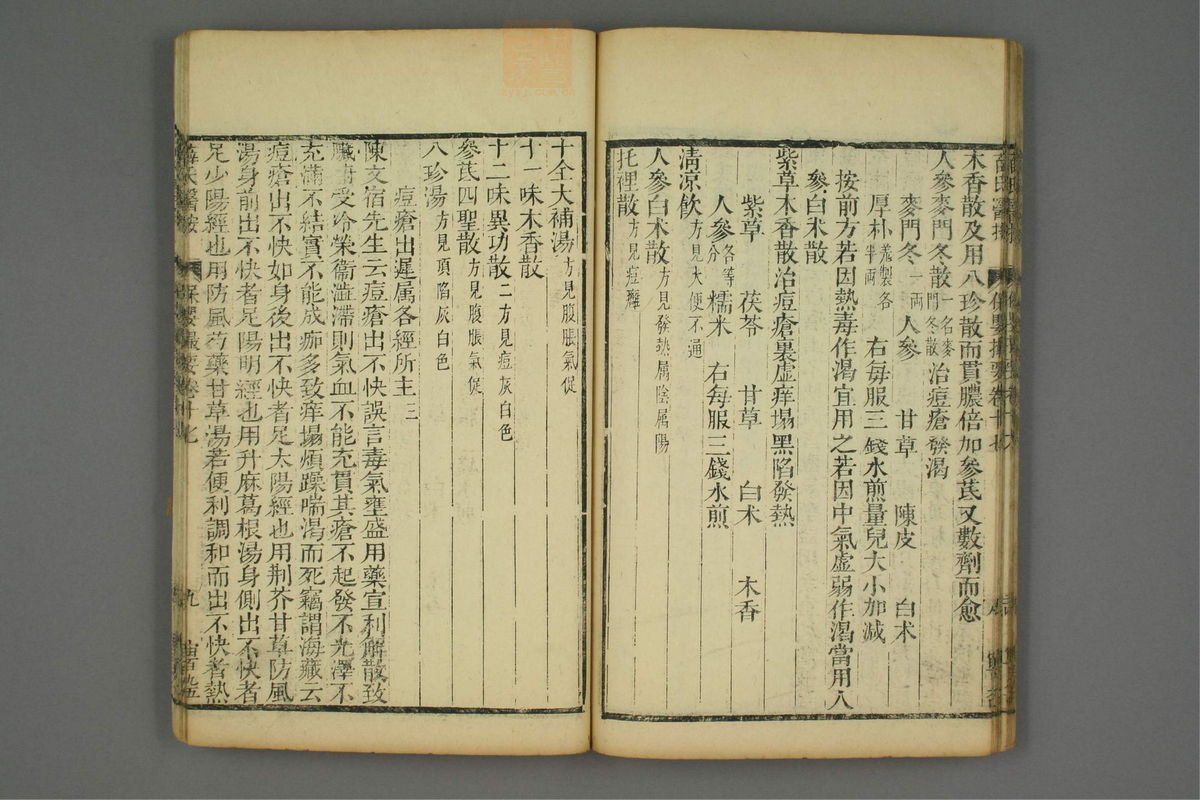 木香散及用八珍散而貫膿倍加參芪又數劑而愈
人參麥門冬散一名麥門冬散治痘瘡發渴
麥門冬一兩 人參 甘草 陳皮 白术
厚朴羌製各半兩 右每服三錢水煎量兒大小加减
按前方若因熱毒作渴宜用之若因中氣虛弱作渴當用人
參白术散
紫草木香散治痘瘡裏虛痒塌黑陷發熱
紫草 茯苓 甘草 白术 木香
人參各等分 糯米 右每服三錢水煎
清凉飲方見大便不通
人參白术散方見發熱属陰属陽
托裡散方見痘癰
十全大補湯方見腹脹氣促
十一味木香散
十二味異功散二方見痘灰白色
參芪四聖散方見腹脹氣促
八珍湯方見頂陷灰白色
痘瘡出遲属各經所主三
陳文宿先生云痘瘡出不快誤言毒氣壅盛用藥宣利解散致
臟腑受冷榮衞澁滯則氣血不能充貫其瘡不起發不光澤不
充滿不結實不能成痂多致痒塌煩躁喘渴而死竊謂海藏云
痘瘡出不快如身後出不快者足太陽經也用荆芥甘草防風
湯身前出不快者足陽明經也用升麻葛根湯身側出不快者
足少陽經也用防風芍藥甘草湯若便利調和而出不快者熱
薛氏醫按 保嬰撮要卷十七 九